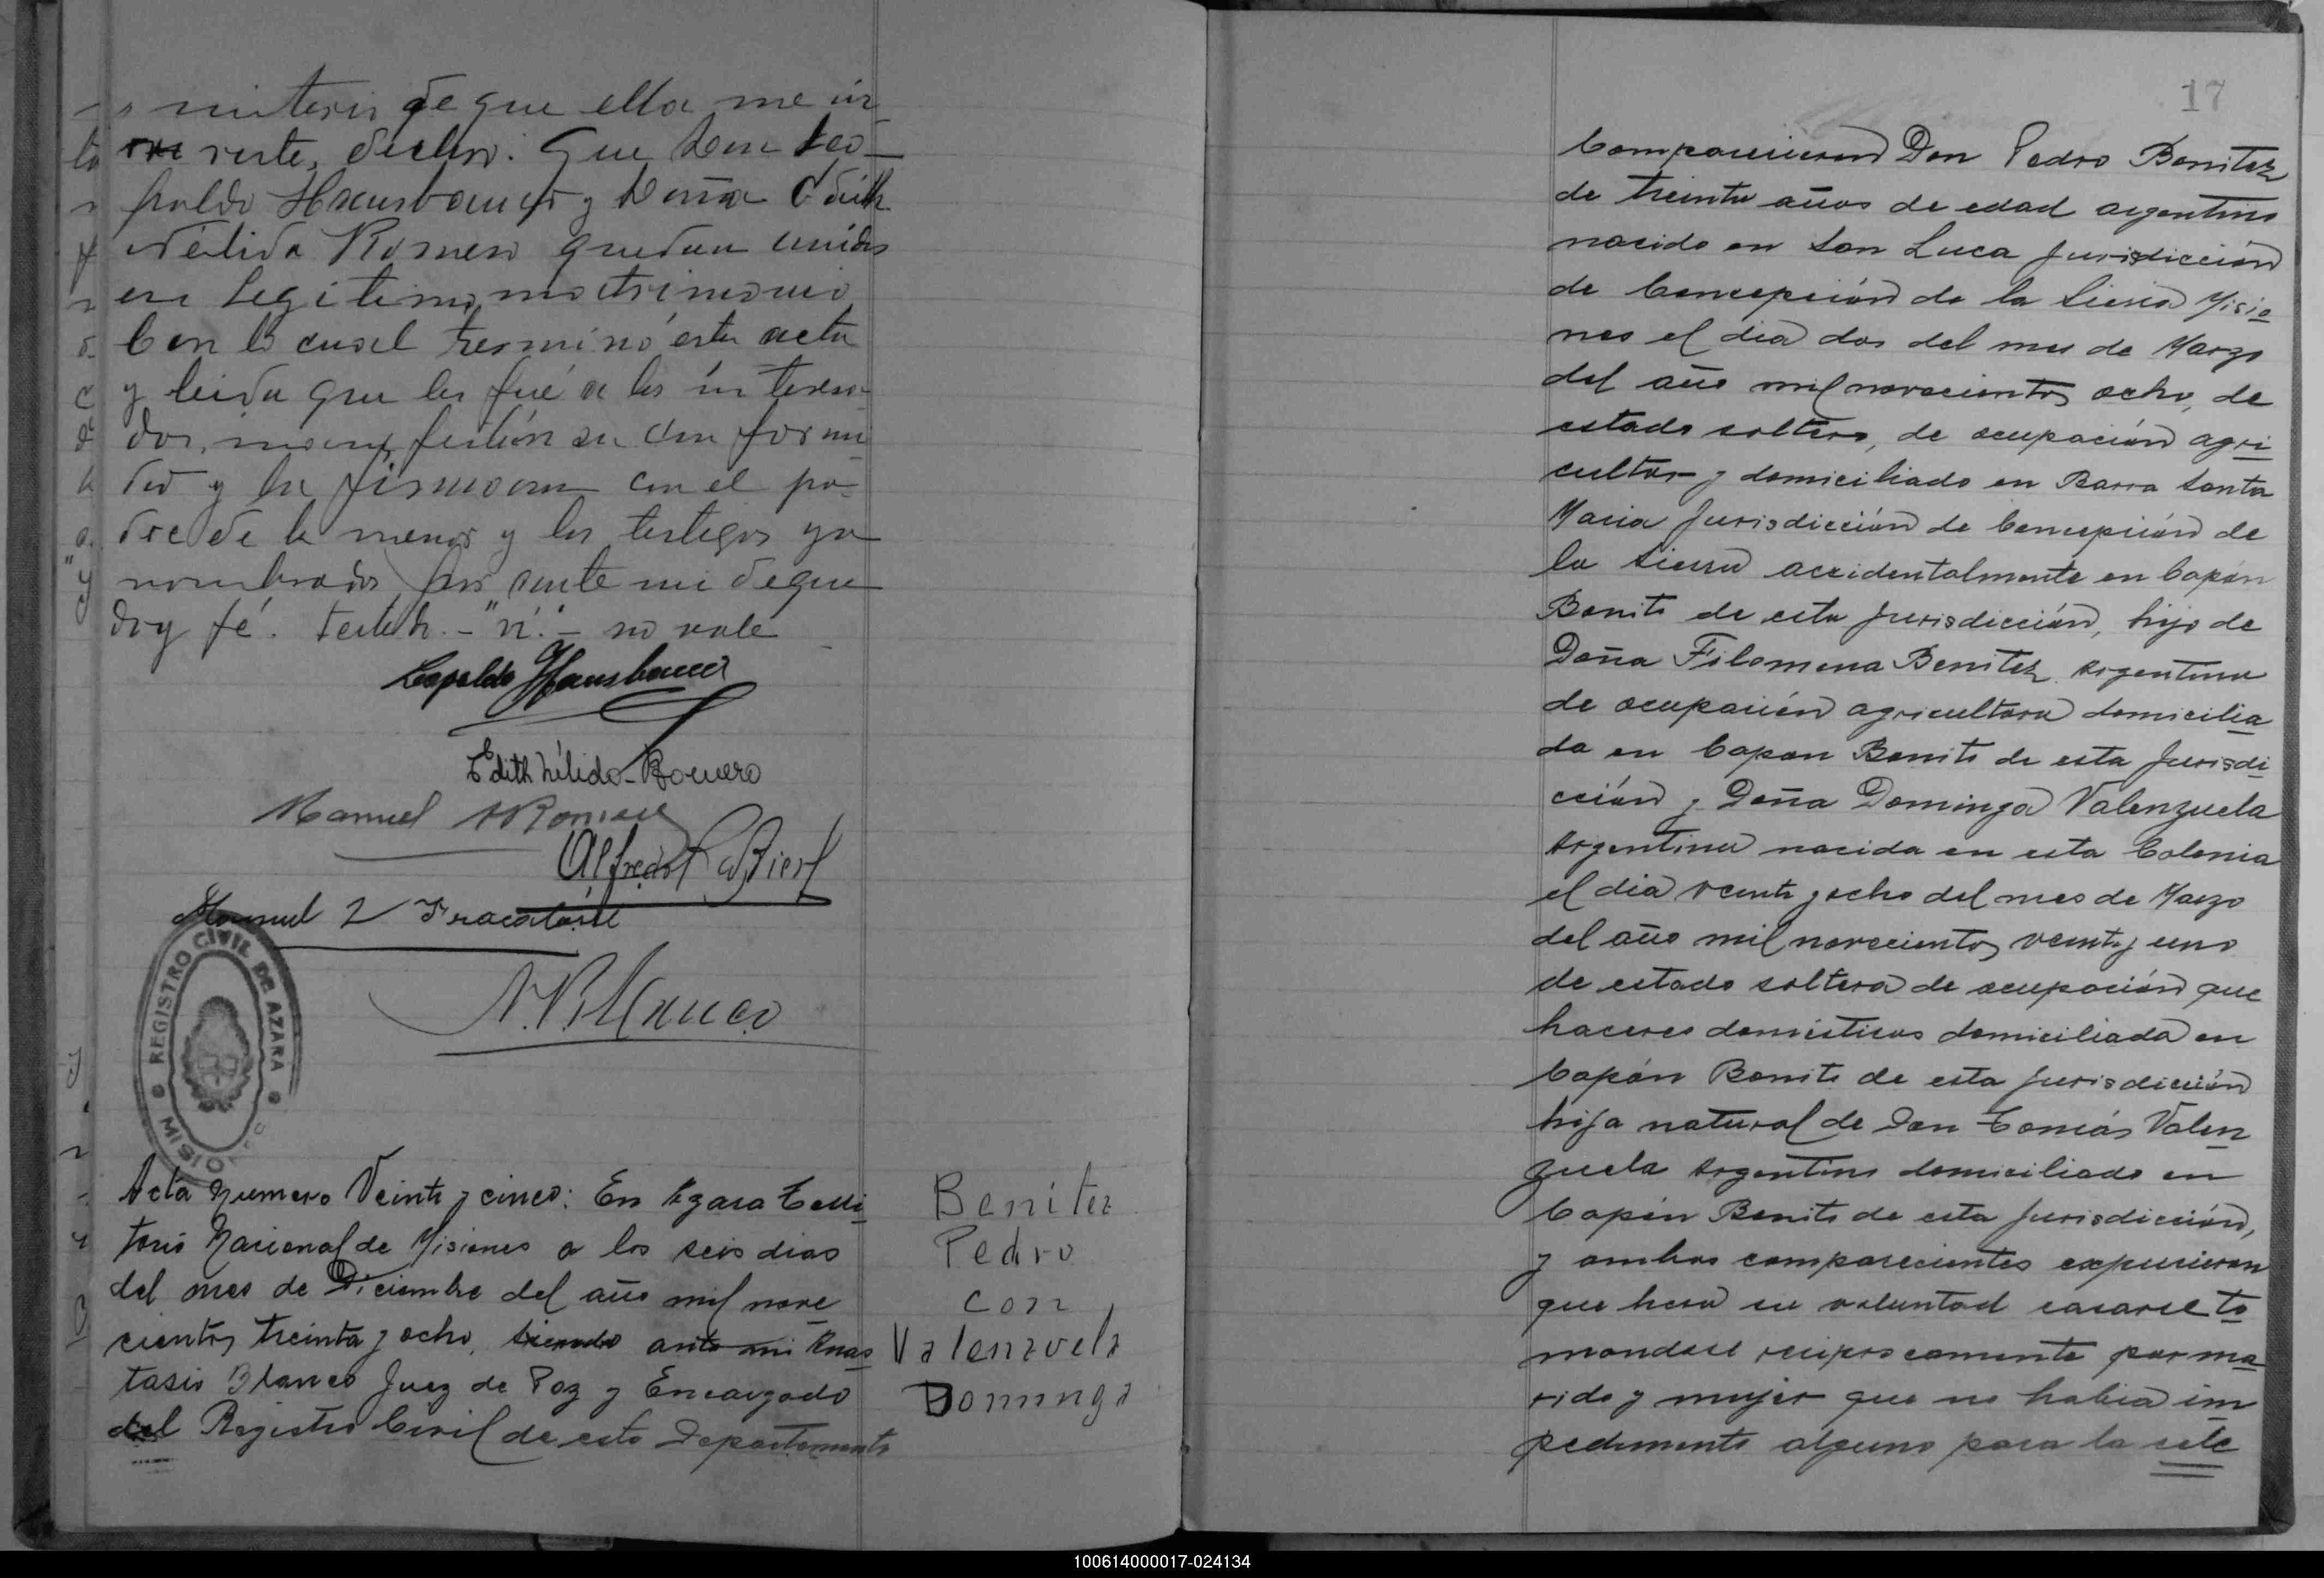 ministerio de que ella me in
viste, declaro: Que Don Leo-
poldo Hausbauer y Doña Edith
Nélida Romero quedan unidos
en legitimo matrimonio
Con lo cual terminó esta acta
y leida que les fué a los interesa-
dos, manifestarón su conformi
dad y la firmaron con el pa-
dre de la menor y los testigos ya
nombrados por ante mi de que
doy fé. Testdo. - "ri". - no vale
Leopoldo Hausbauer
Edith Nélida Romero
Manuel A Romero
Alfredo
Manuel
A. Blanco
REGISTRO CIVIL DE AZARA
MISIONES
Acta Numero Veinte y cinco: En Azara Terri
torio Nacional de Misiones a los seis dias
del mes de Diciembre del año mil nove
cientos treinta y ocho, siendo ante mi Anas
tasio Blanco Juez de Paz y Encargado
del Registro Civil de este Departamento
Benitez
Pedro
con
Valenzuela
Dominga
17
Comparecieron Don Pedro Benitez
de treinta años de edad argentino
nacido en San Luca Jurisdicción
de Concepción de la Sierra Misio
nes el dia dos del mes de Marzo
del año mil novecientos ocho, de
estado soltero, de ocupación agri
cultor y domiciliado en Barra Santa
Maria Jurisdicción de Concepción de
la Sierra accidentalmente en Capón
Bonito de esta Jurisdicción, hijo de
Doña Filomena Benitez Argentina
de ocupación agricultora domicilia
da en Capon Bonito de esta Jurisdi
cción y Doña Dominga Valenzuela
Argentina nacida en esta Colonia
el dia veinte y ocho del mes de Marzo
del año mil novecientos veinte y uno
de estado soltera de ocupación que
haceres domésticos domiciliada en
Capón Bonito de esta Jurisdicción
hija natural de Don Tomás Valen
zuela Argentino domiciliado en
Capón Bonito de esta Jurisdicción,
y ambos comparecientes expusieron
que hera su voluntad casarse to
mandose reciprocamente por ma
rido y mujer que no habia im
pedimento alguno para la cele
100614000017-024134